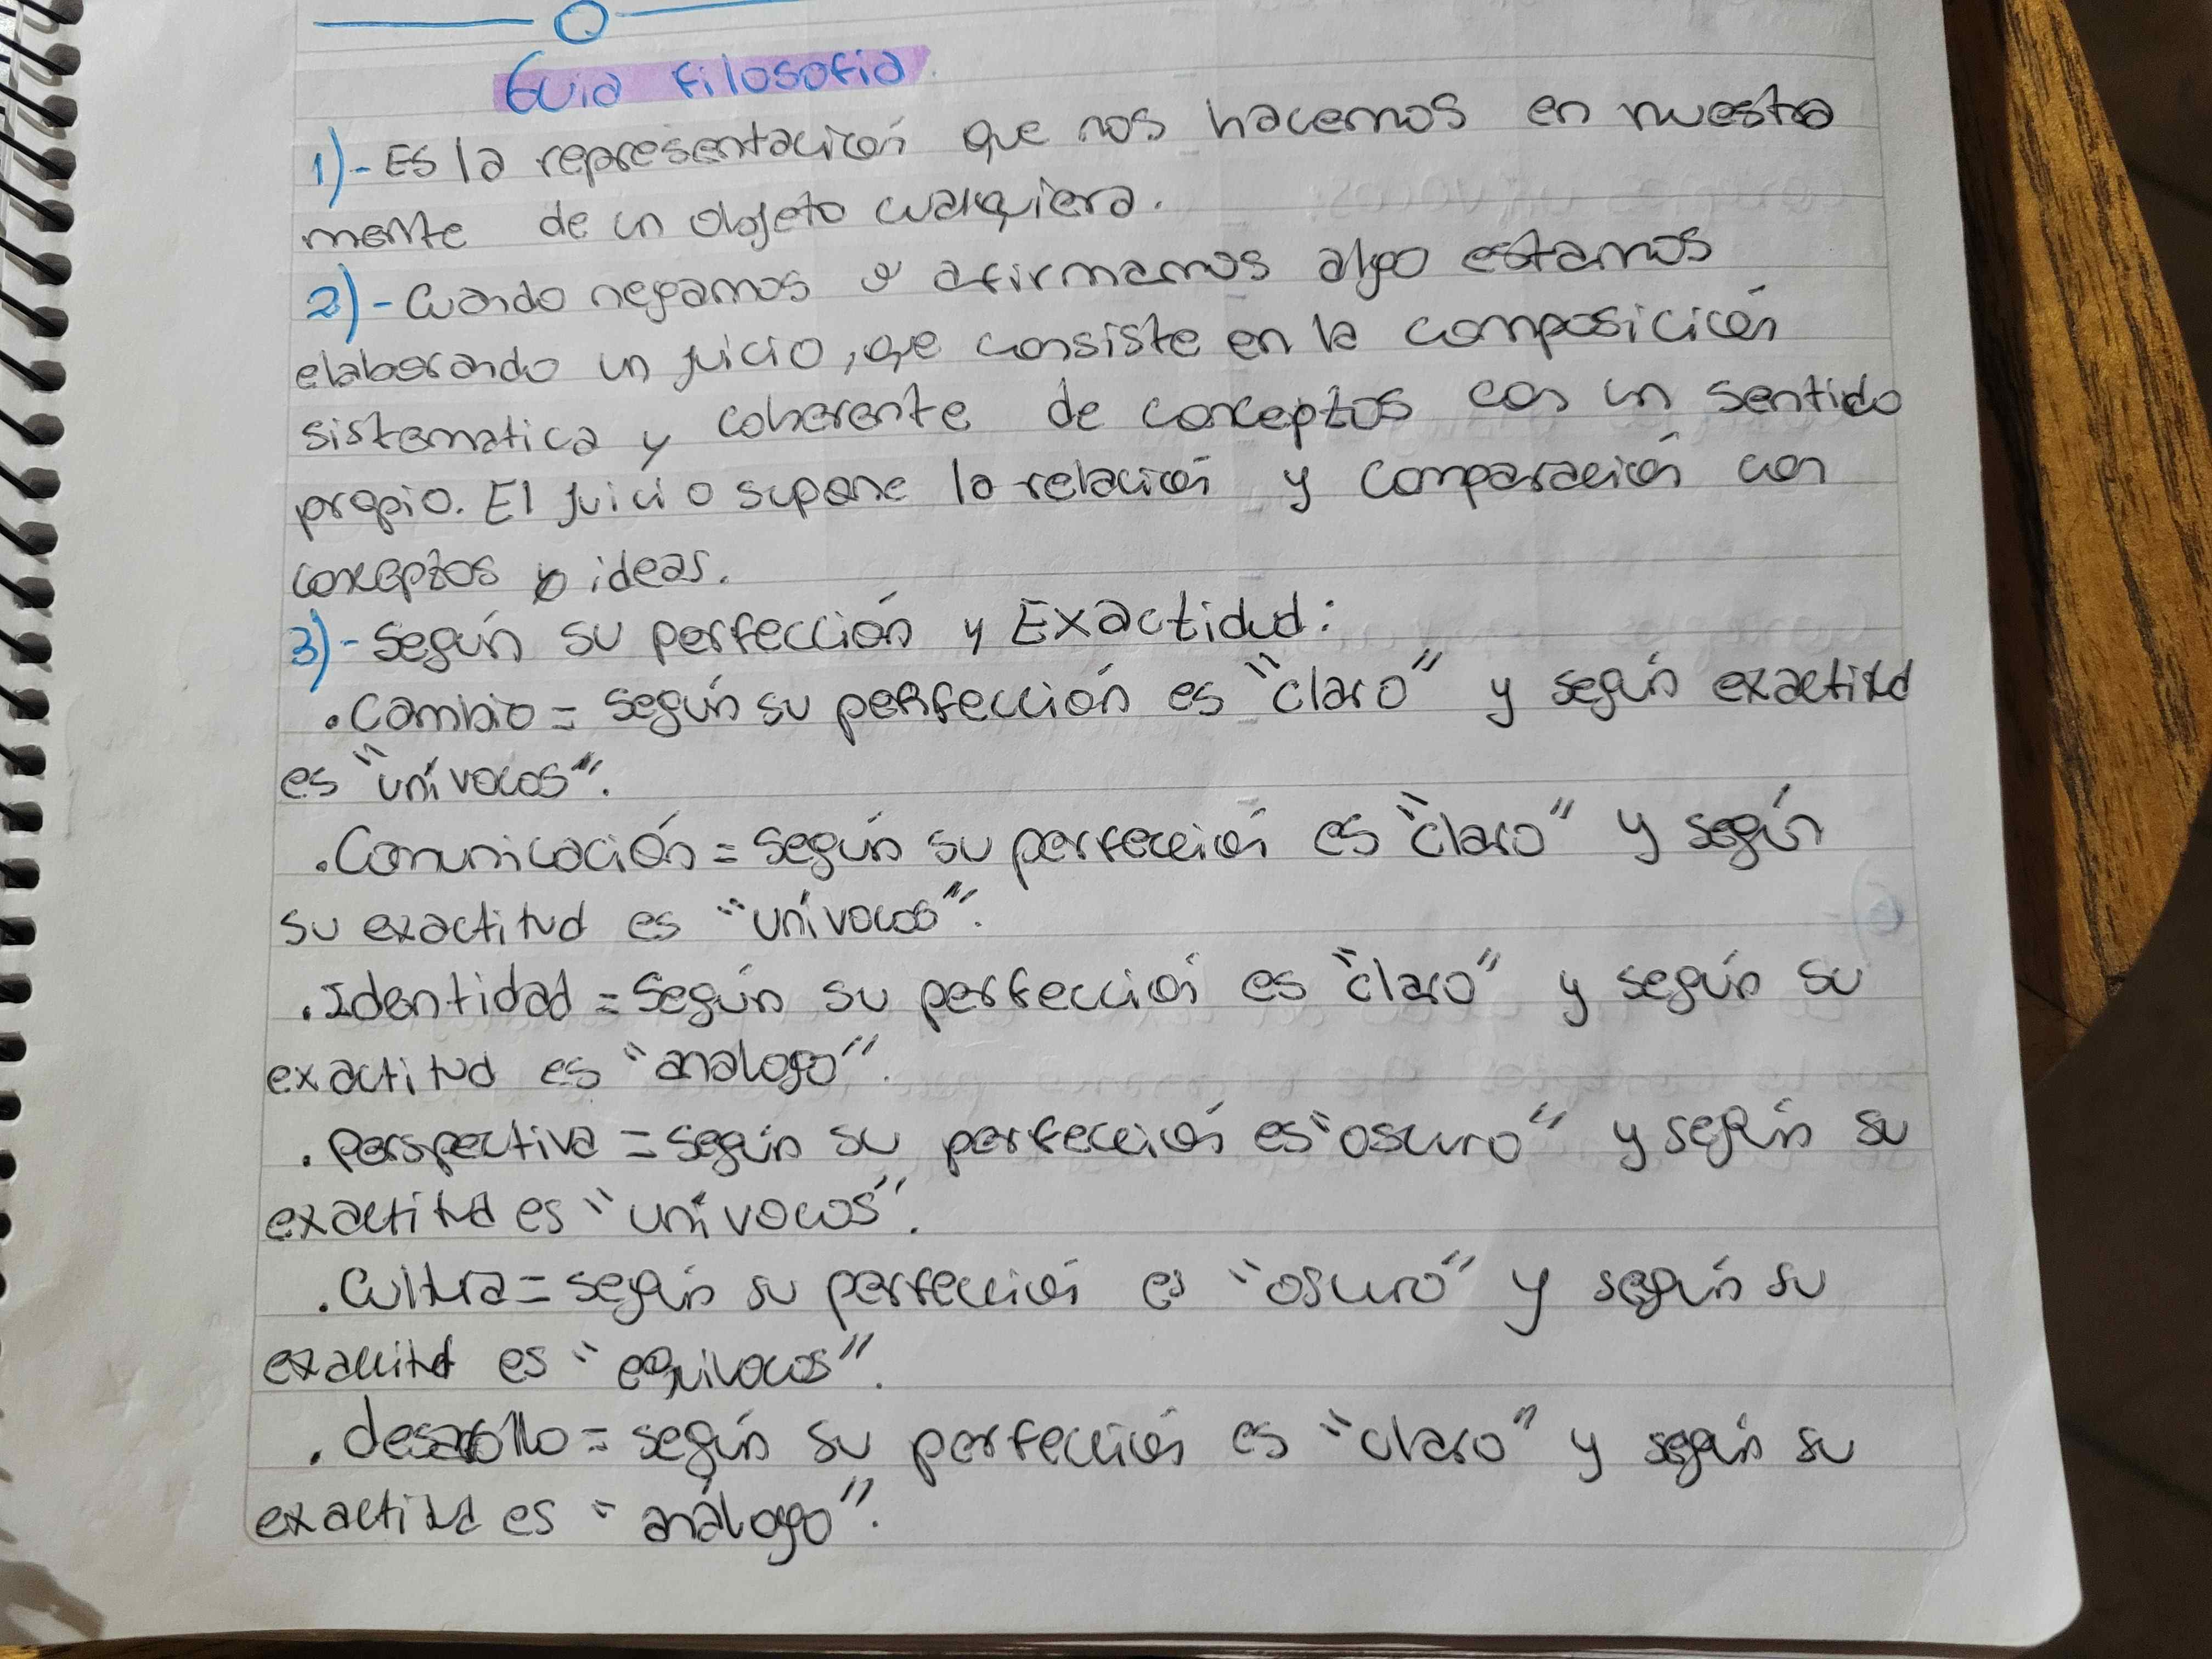 Guia filosofia
1)- Es la representación que nos hacemos en nuestra
mente de un objeto cualquiera.
2)- Cuando negamos o afirmamos algo estamos
elaborando un juicio, que consiste en la composición
sistematica y coherente de conceptos con un sentido
propio. El juicio supone la relación y comparación con
conceptos o ideas.
3)- Según su perfección y Exactidud:
. Cambio = según su perfección es "claro" y según exactitud
es "unívocos".
. Comunicación = según su perfección es "claro" y según
su exactitud es "unívocos".
. Identidad = Según su perfección es "claro" y según su
exactitud es "analogo".
. Perspectiva = según su perfección es "oscuro" y según su
exactitud es "unívocos".
. Cultura = según su perfección es "oscuro" y según su
exactitud es "equivocos".
. desarollo = según su perfección es "claro" y según su
exactitud es "análogo".